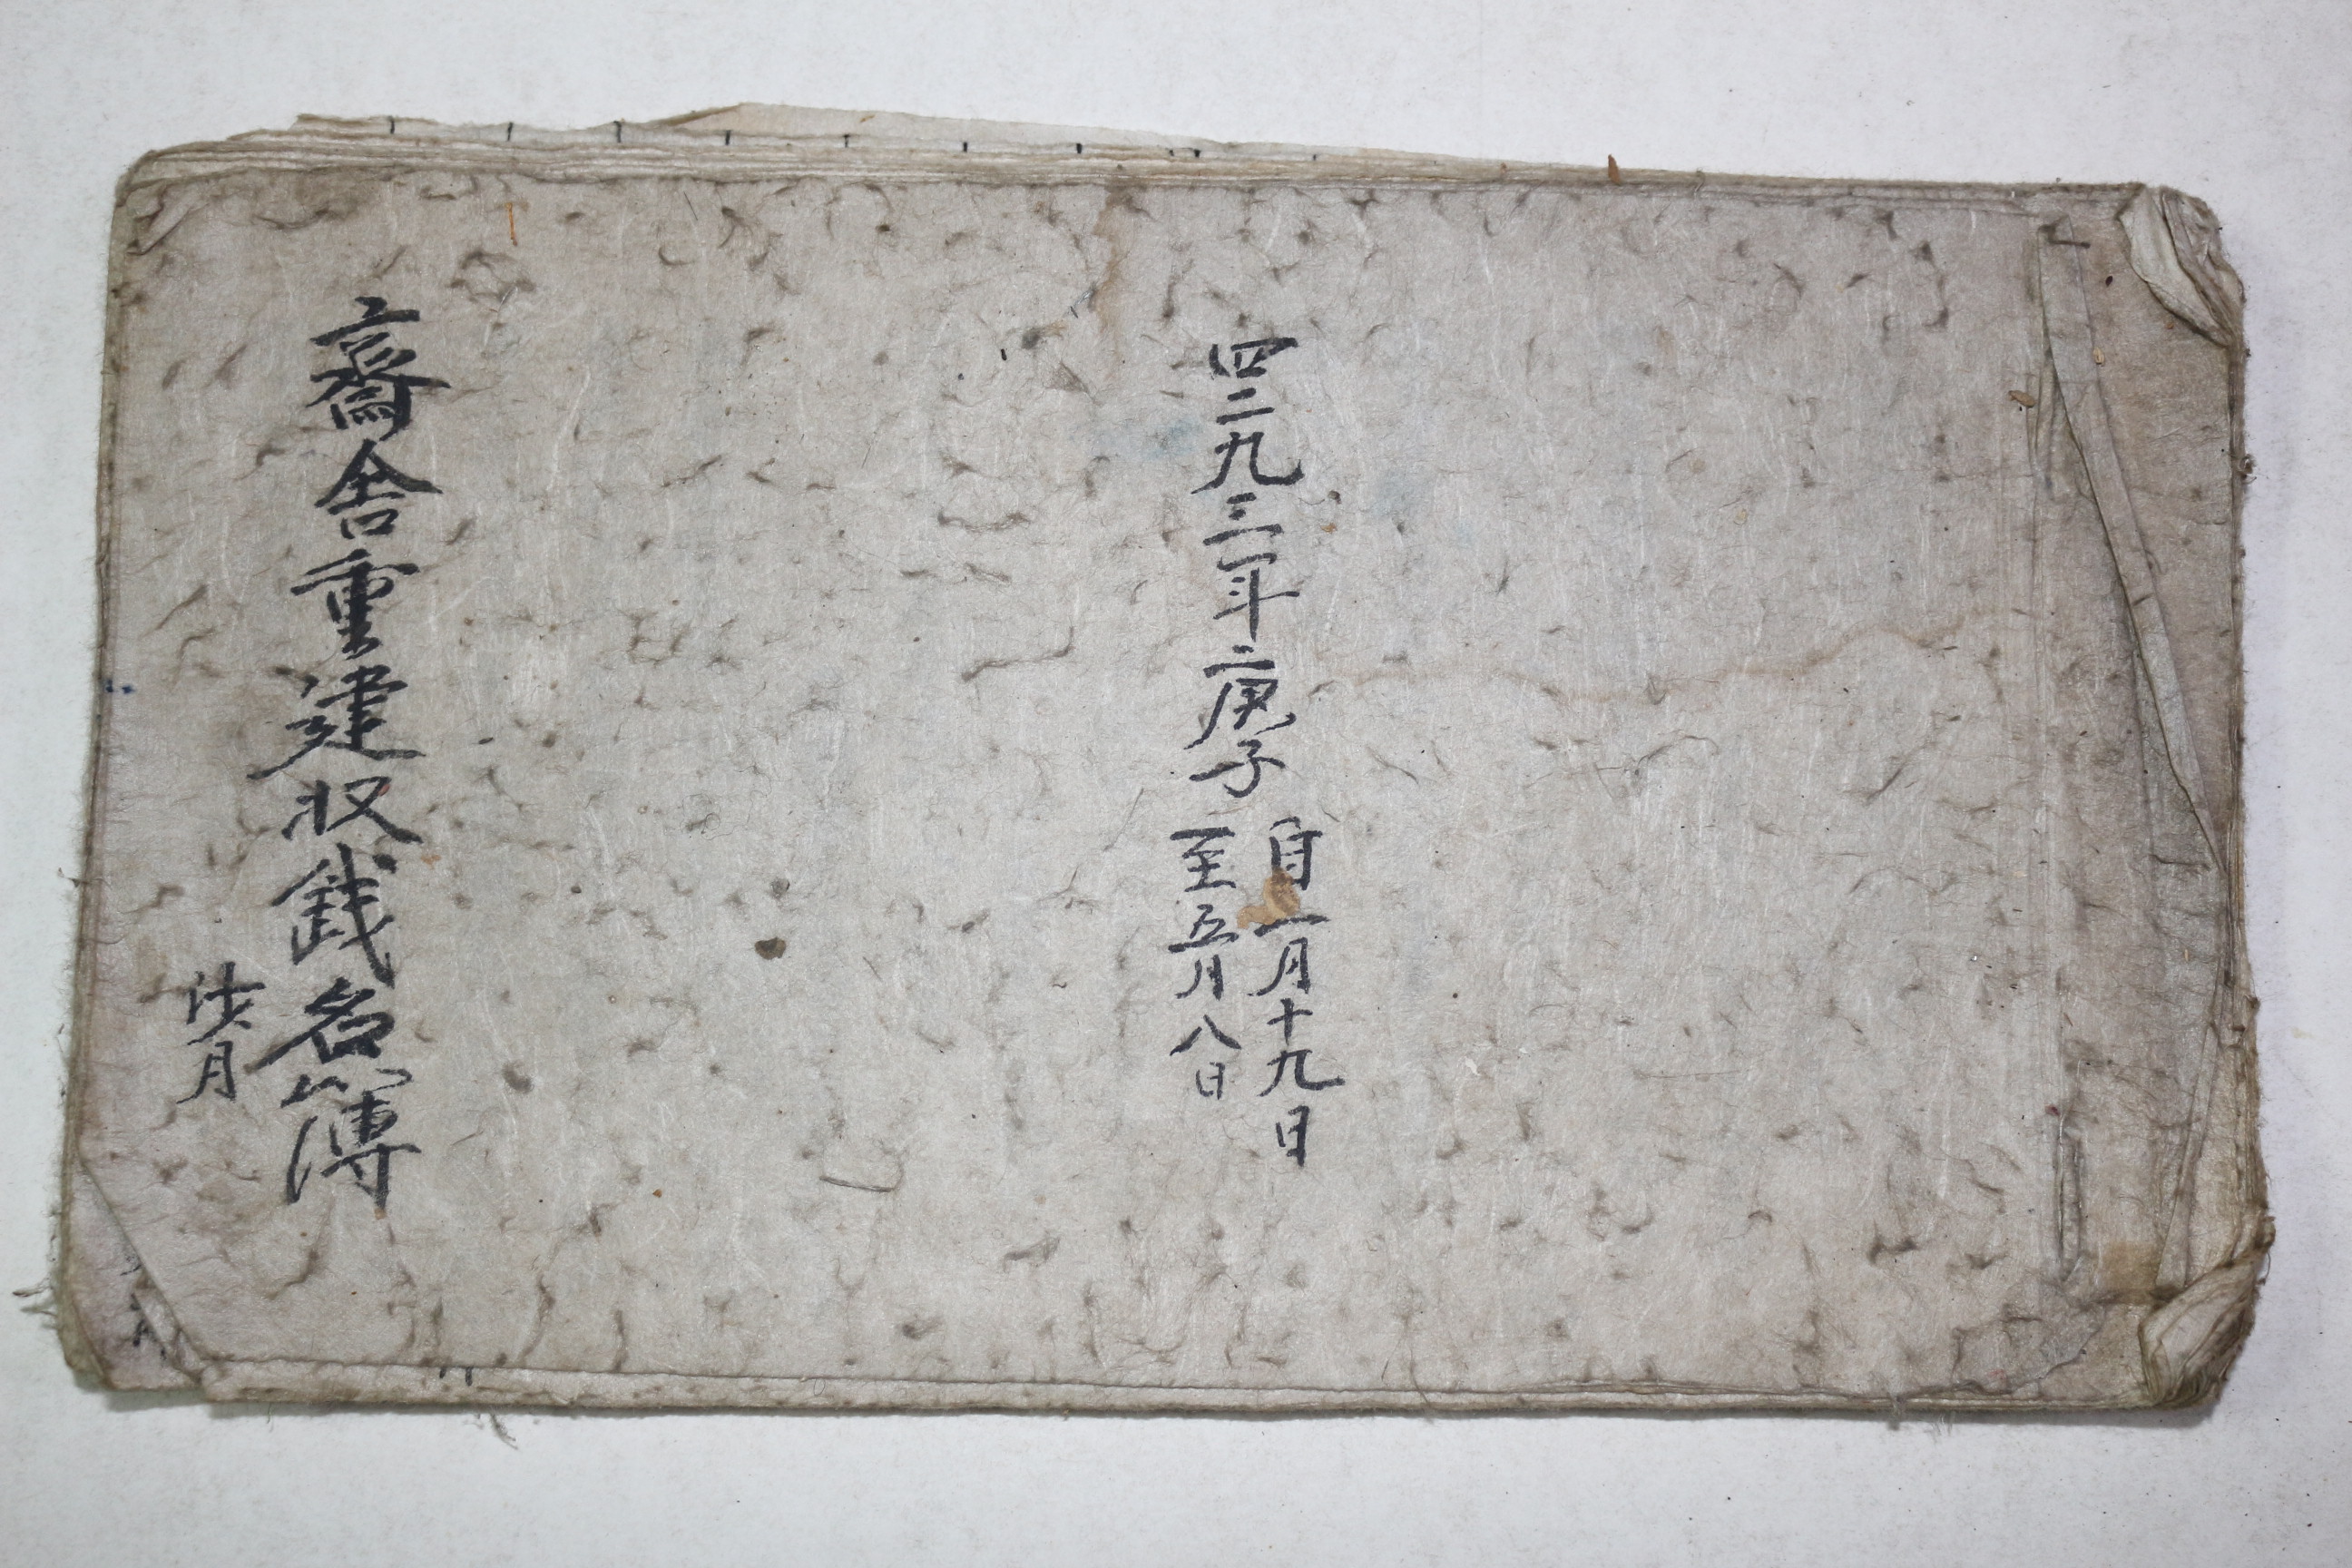 四二九三年庚子
自一月十九日
至五月八日
齋舍重建収錢名簿